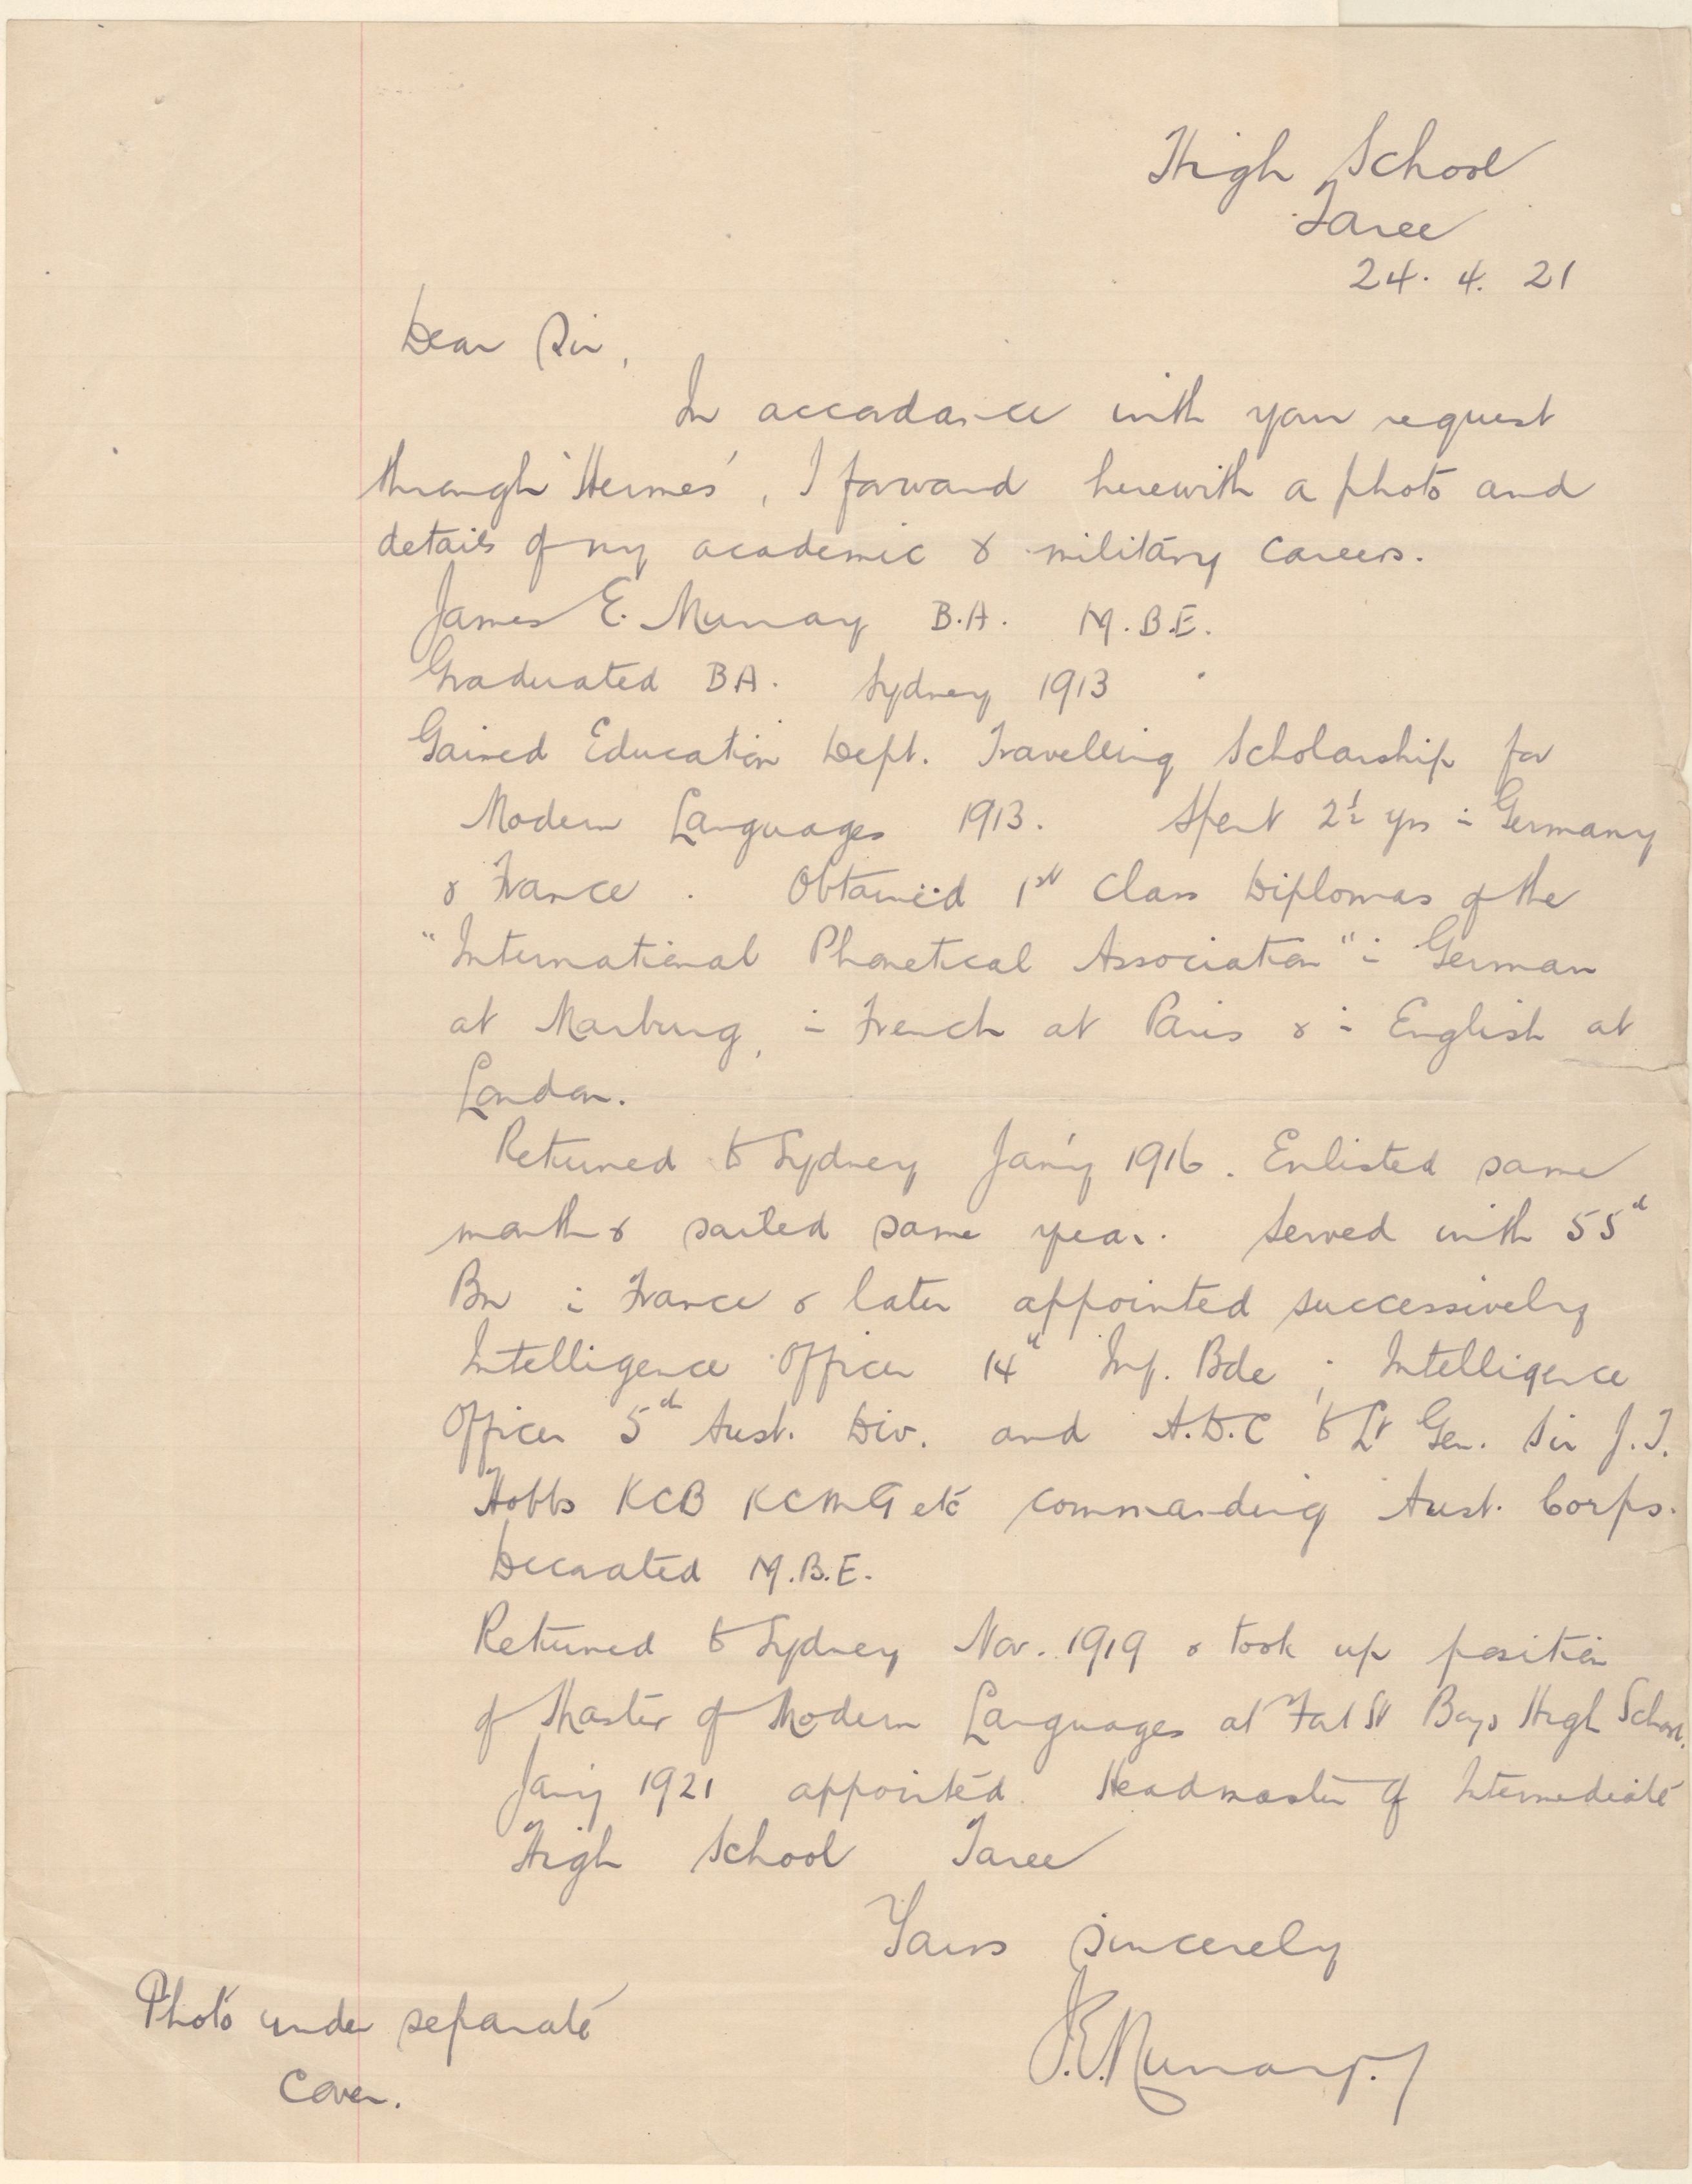 High School
Taree
24. 4. 21
Dear Sir,
In accordance with your request
through 'Hermes', I forward herewith a photo and
details of my academic & military careers.
James E. Murray B.A. M.B.E.
Graduated BA. Sydney 1913
Gained Education Dept. Travelling Scholarship for
Modern Languages 1913. Spent 2½ yrs in Germany
& France. Obtained 1st Class Diplomas of the
"International Phonetical Association" in German
at Marburg, in French at Paris & in English at
London.
Returned to Sydney Jan'y 1916. Enlisted same
month & sailed same year. Served with 55th
Bn in France & later appointed successively
Intelligence Officer 14th Inf. Bde ; Intelligence
Officer 5th Aust. Div. and A.D.C to Lt Gen. Sir J.T.
Hobbs KCB KCMG etc commanding Aust. Corps.
Decorated M.B.E.
Returned to Sydney Nov. 1919 & took up position
of Master of Modern Languages at Fort St Boys High School.
Jan'y 1921 appointed Headmaster of Intermediate
High School Taree
Yours sincerely
J.E. Murray.
Photo under separate
cover.